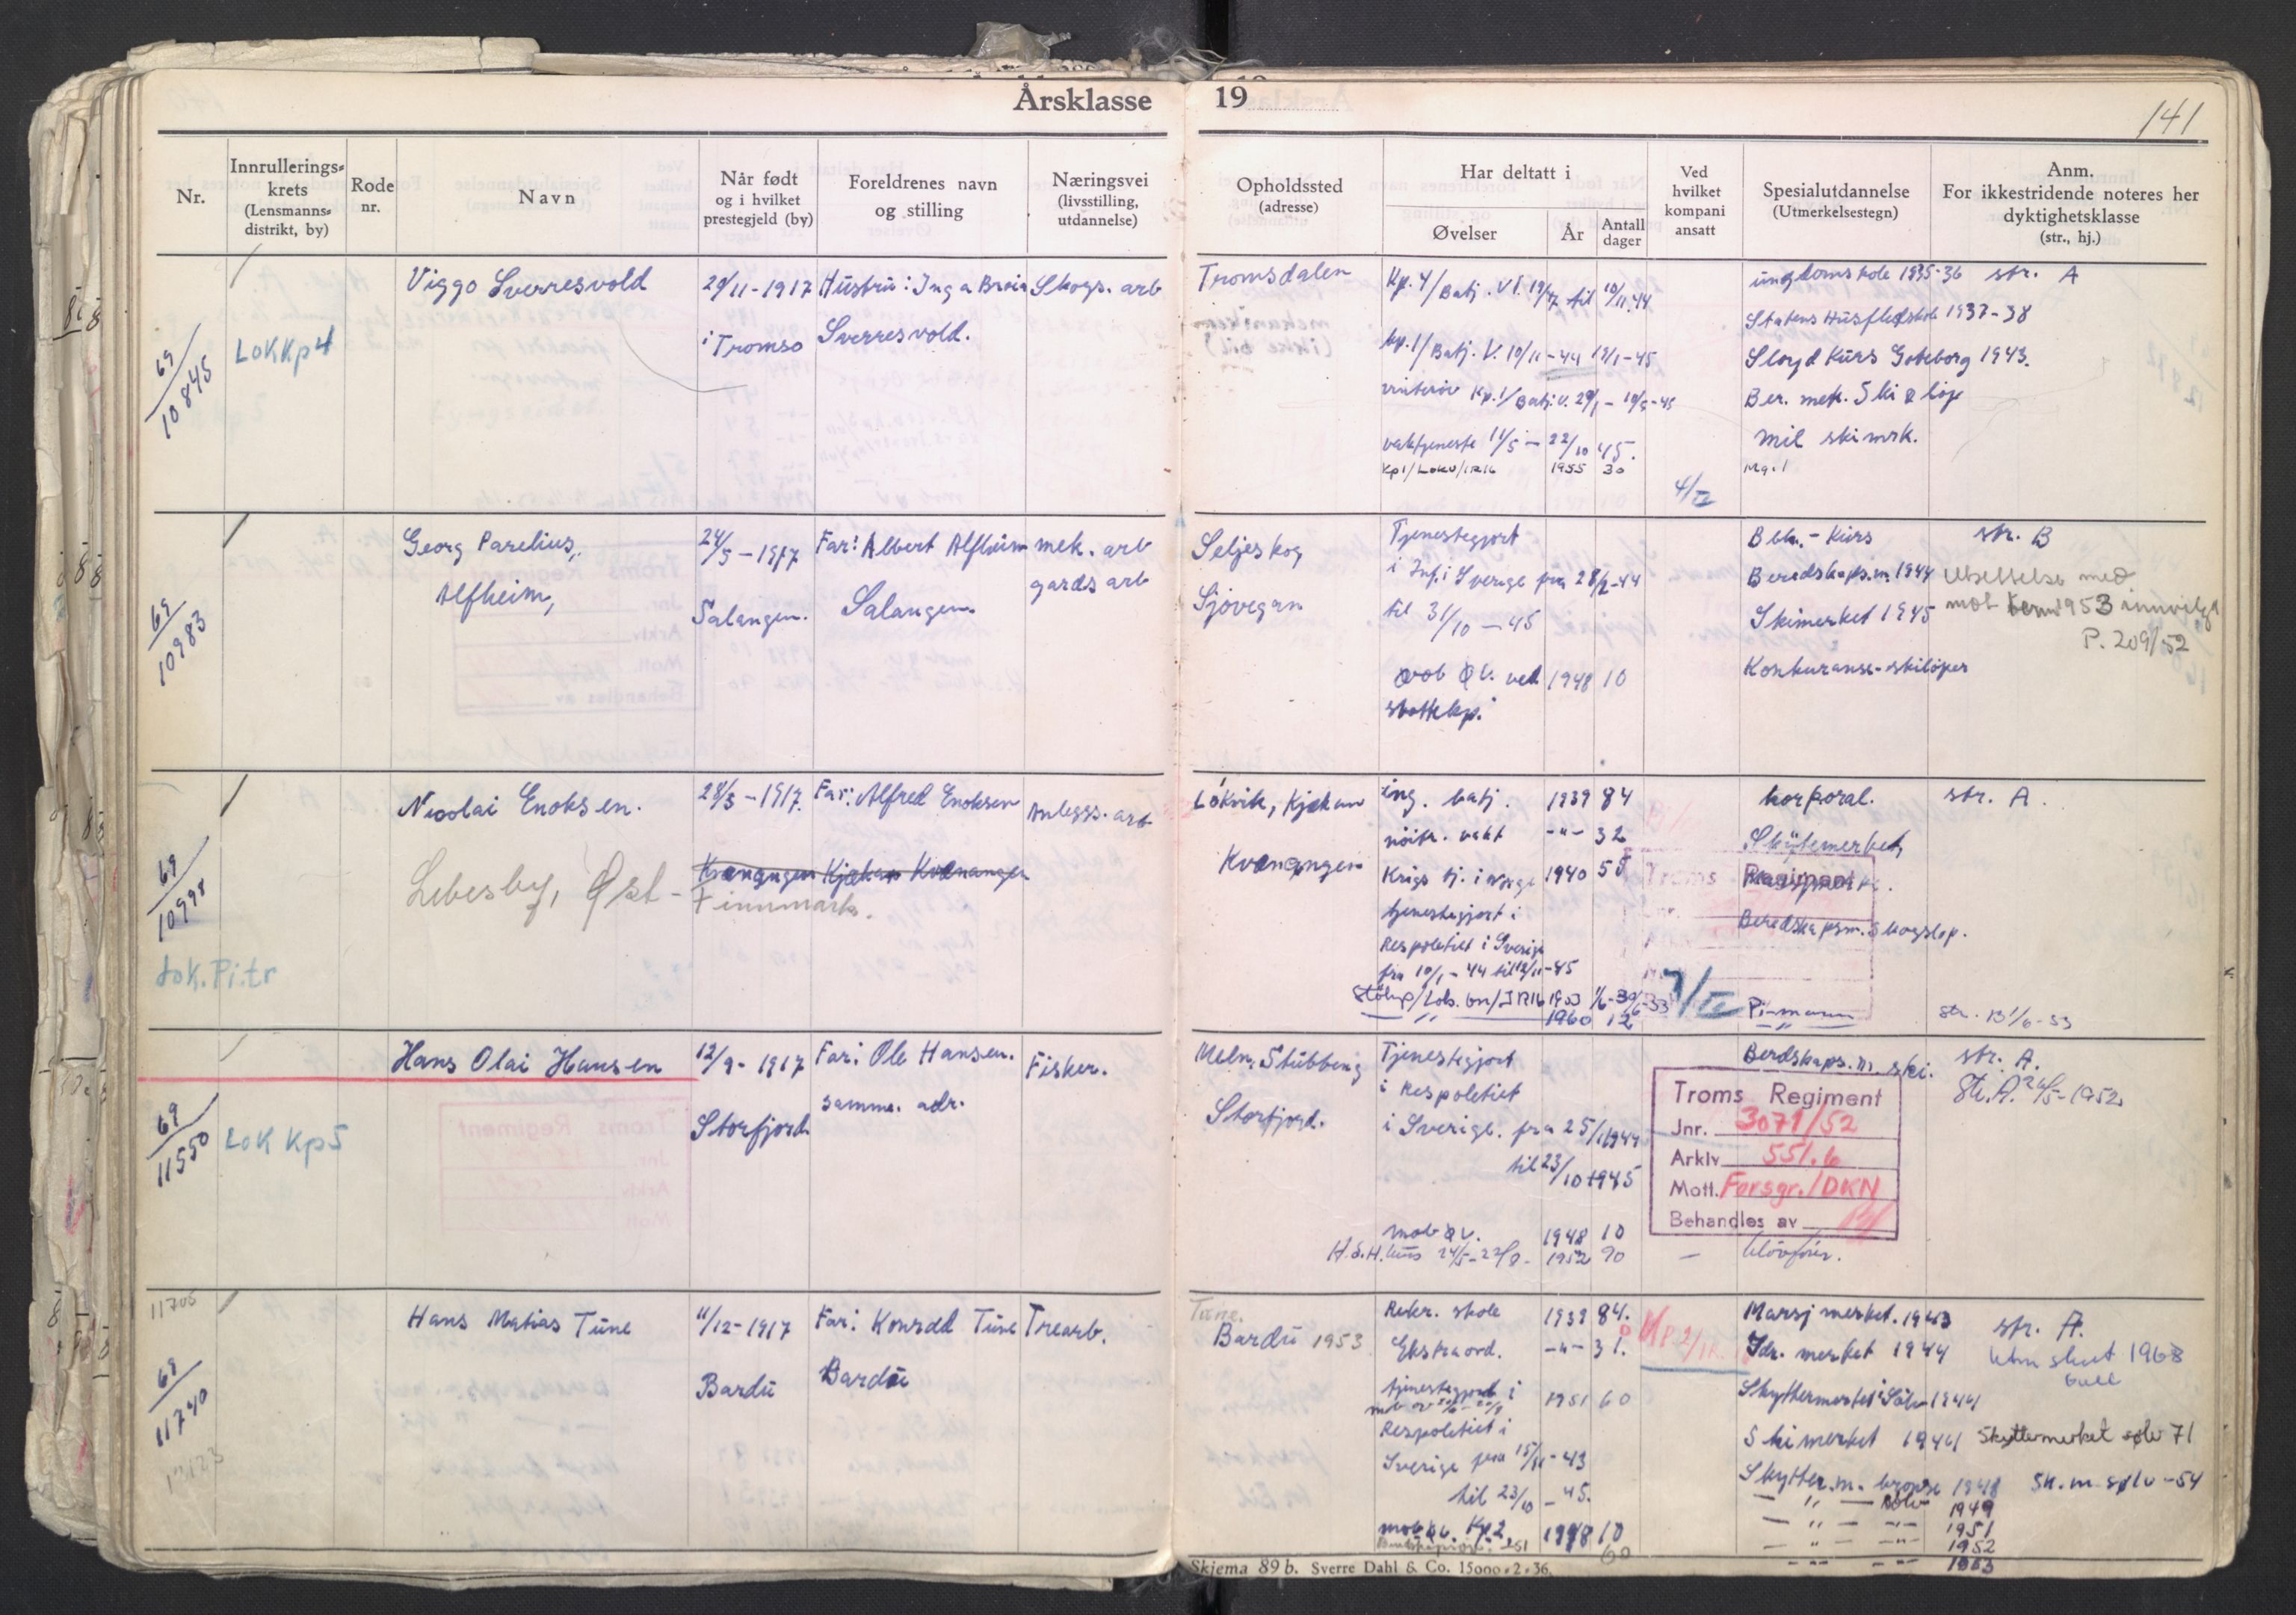 Årsklasse 19
141
Nr.
Innrullerings-
krets
(Lensmanns-
distrikt, by)
Rode
nr.
Navn
Når født
og i hvilket
prestegjeld (by)
Foreldrenes navn
og stilling
Næringsvei
(livsstilling,
utdannelse)
Opholdssted
(adresse)
Har deltatt i
Øvelser
År
Antall
dager
Ved
hvilket
kompani
ansatt
Spesialutdannelse
(Utmerkelsestegn)
Anm.
For ikkestridende noteres her
dyktighetsklasse
(str., hj.)
69/10845
LOK Kp 4
Viggo Sverresvold
29/11-1917
i Tromsø
Hustru: Inga
Sverresvold.
Skogs. arb
Tromsdalen
Kp. 4/Batj. VI. 19/7 til 10/11.44
kp. 1/Batj. V. 10/11-44 19/1-45
Kp. 1/Batj. V. 29/1 - 10/5-45
vakttjeneste 11/5 - 22/10 45.
1955 30
4/IV
ungdomskole 1935-36
Statens Husflidskole 1937-38
Sloyd Kurs Goteborg 1943.
Ber. merk. Ski & løp
mil skimrk.
str. A
69/10983
Georg Parelius,
Alfheim,
24/5-1917
Salangen.
Far: Albert Alfheim
Salangen.
mek. arb
gards arb
Seljeskog
Sjøvegan
Tjenestegjort
i Inf. i Sverige fra 28/2-44
til 31/10-45
1948 10
støttekp.
- Kurs
Beredskaps.m. 1944
Skimerket 1945
Konkuranse-skiløper
str. B
Utsettelse med
mob 1953 innvilget
P. 209/52
69/10998
Lok. Pi.tr
Nicolai Enoksen.
Lebesby, Øst-
Finnmark.
28/3-1917.
Kvænangen
Far: Alfred Enoksen
Kjækan Kvænangen
Anleggs. arb
Løkvik, Kjækan
Kvænangen
ing. batj. 1939 84
nøitr. vakt -"- 32
Krigs tj. i Norge 1940 55
tjenestegjort i
Respolitiet i Sverige
fra 10/1-44 til 12/11-45
1953 1/6-30/6-53
" 1960 12
7/IV
korporal.
Skytemerket,
Beredskapsm. Skogsløp.
Pi-mann
"
Troms Regiment
str. A.
str. B 1/6-53
69/11550
LOK Kp 5
Hans Olai Hansen
12/9-1917
Storfjord
Far: Ole Hansen.
samme. adr.
Fisker.
Meln, Stubbeng
Storfjord.
Tjenestegjort
i Respolitiet
i Sverige. fra 25/1 1944
til 23/10 1945
mob øv. 1948 10
H.S.H. kurs 24/5-22/8- 1952 90
-
Berdskaps. m. ski.
Troms Regiment
Jnr. 3071/52
Arkiv 551.6
Mott. Forsgr./DKN
Behandles av
Kløvfør.
str. A.
Str. A. 26/5-1952
11705
69/11740
Hans Matias Tune
11/12-1917
Bardu
Far: Konrad Tune
Bardu
Trearb.
Tune.
Bardu 1953
Rekr. skole 1939 84.
Ekstraord. -"- 31.
tjenestegjort i
1951 60
Respolitiet i
Sverige fra 15/11-43
til 23/10-45.
mob øv. Kp. 2 1948 10
60
Kp 2/IR
Marsj merket. 1943
Idr. merket 1944
Skyttermerket i Sølv 1944
Skimerket 1944
Skytter. m. bronse 1948
- " - sølv 1949
- " - -"- 1951
- " - -"- 1952
-"- -"- 1953
str. A.
1968
Gull
Skyttermerket sølv 71
Sk. m sølv -54
Skjema 89 b. Sverre Dahl & Co. 15000. 2. 36.